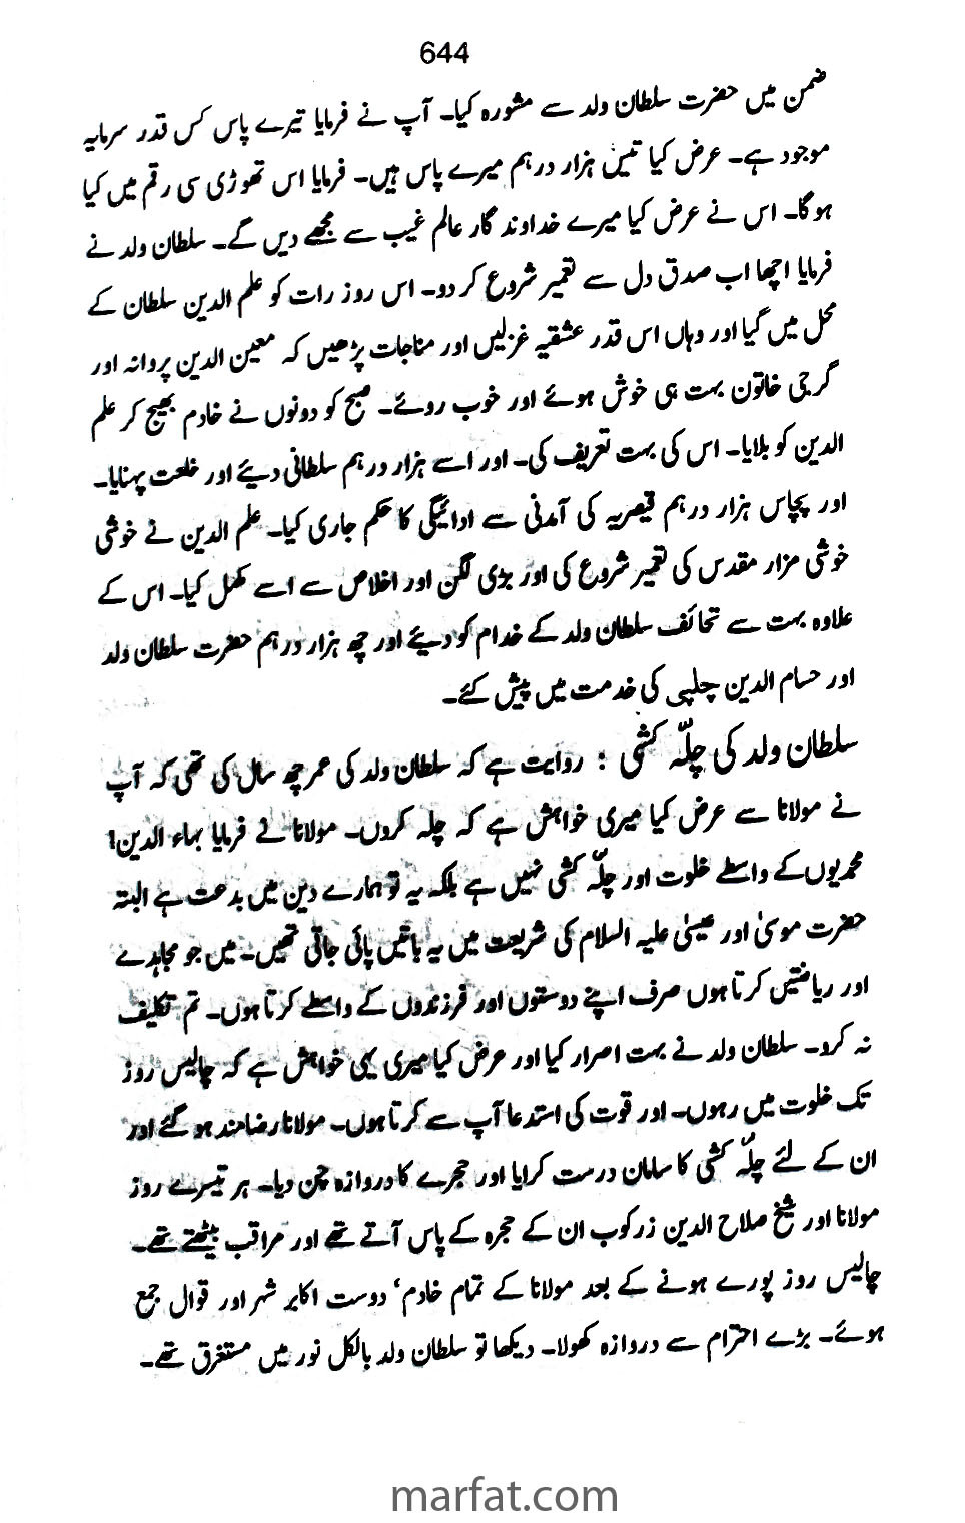 644
ضمن میں حضرت سلطان ولد سے مشورہ کیا۔ آپ نے فرمایا تیرے پاس کس قدر سرمایہ
موجود ہے۔ عرض کیا تین ہزار درہم میرے پاس ہیں۔ فرمایا اس تھوڑی سی رقم میں کیا
ہوگا۔ اس نے عرض کیا میرے خداوند گار عالم غیب سے مجھے دیں گے۔ سلطان ولد نے
فرمایا اچھا اب صدق دل سے تعمیر شروع کر دو۔ اس روز رات کو علم الدین سلطان کے
محل میں گیا اور وہاں اس قدر عشقیہ غزلیں اور مناجات پڑھیں کہ معین الدین پروانہ اور
گرجی خاتون بہت ہی خوش ہوئے اور خوب روئے۔ صبح کو دونوں نے خادم بھیج کر علم
الدین کو بلایا۔ اس کی بہت تعریف کی۔ اور اسے ہزار درہم سلطانی دیئے اور خلعت پہنایا۔
اور پچاس ہزار درہم قیصریہ کی آمدنی سے ادائیگی کا حکم جاری کیا۔ علم الدین نے خوشی
خوشی مزار مقدس کی تعمیر شروع کی اور بڑی لگن اور اخلاص سے اسے مکمل کیا۔ اس کے
علاوہ بہت سے تحائف سلطان ولد کے خدام کو دیئے اور چھ ہزار درہم حضرت سلطان ولد
اور حسام الدین چلپی کی خدمت میں پیش کئے۔
سلطان ولد کی چلّہ کشی : روایت ہے کہ سلطان ولد کی عمر چھ سال کی تھی کہ آپ
نے مولانا سے عرض کیا میری خواہش ہے کہ چلہ کروں۔ مولانا نے فرمایا بہاء الدین!
محمدیوں کے واسطے خلوت اور چلّہ کشی نہیں ہے بلکہ یہ تو ہمارے دین میں بدعت ہے البتہ
حضرت موسیٰ اور عیسیٰ علیہ السلام کی شریعت میں یہ باتیں پائی جاتی تھیں۔ میں جو مجاہدے
اور ریاضتیں کرتا ہوں صرف اپنے دوستوں اور فرزندوں کے واسطے کرتا ہوں۔ تم تکلیف
نہ کرو۔ سلطان ولد نے بہت اصرار کیا اور عرض کیا میری یہی خواہش ہے کہ چالیس روز
تک خلوت میں رہوں۔ اور قوت کی استدعا آپ سے کرتا ہوں۔ مولانا رضامند ہو گئے اور
ان کے لئے چلّہ کشی کا سامان درست کرایا اور حجرے کا دروازہ چن دیا۔ ہر تیسرے روز
مولانا اور شیخ صلاح الدین زرکوب ان کے حجرہ کے پاس آتے تھے اور مراقب بیٹھتے تھے۔
چالیس روز پورے ہونے کے بعد مولانا کے تمام خادم، دوست اکابر شہر اور قوال جمع
ہوئے۔ بڑے احترام سے دروازہ کھولا۔ دیکھا تو سلطان ولد بالکل نور میں مستغرق تھے۔
marfat.com